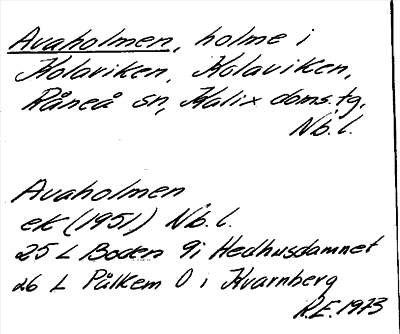 Avaholmen, holme i
Kolaviken, Kolaviken,
Råneå sn, Kalix doms.tg,
Nb. l.
Avaholmen
ek (1951) Nb. l.
25 L Boden 9i Hedhusdamnet
26 L Pålkem 0 i Kvarnberg
R.E. 1973